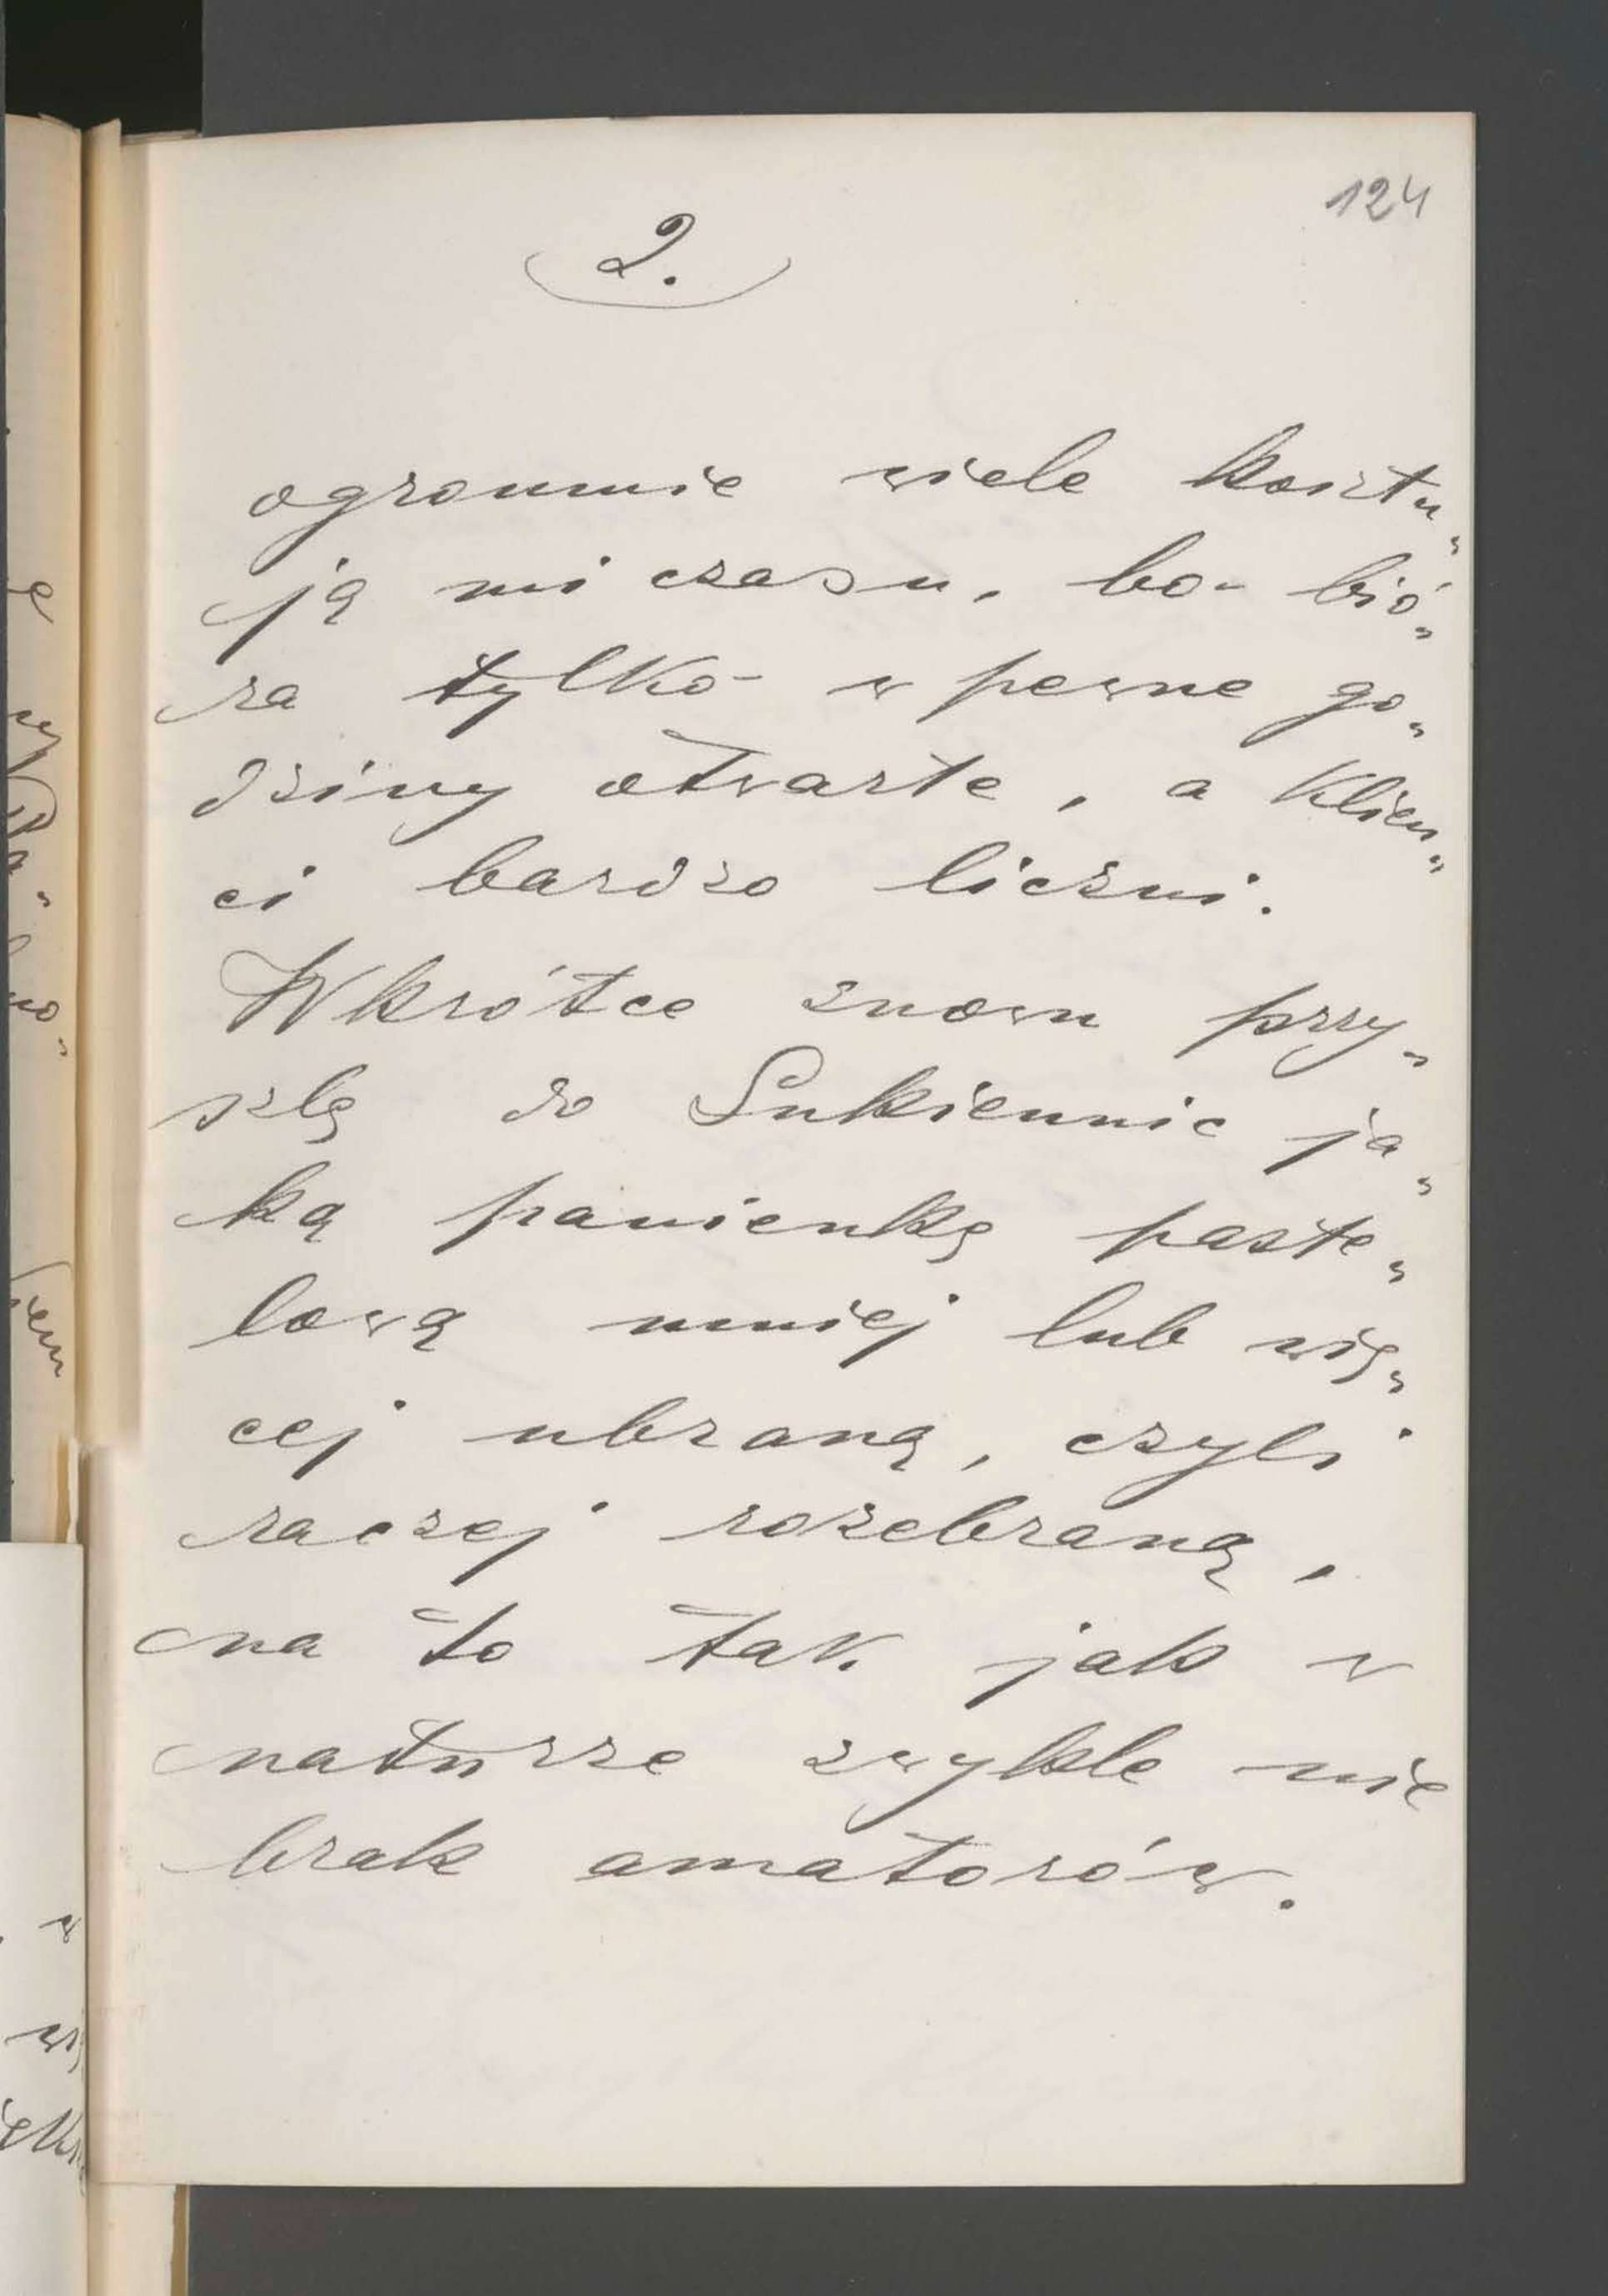 124
2.
ogromnie wiele kosztu„
ją mi czasu, bo- bió„
ra tylko- w pewne go„
dziny otwarte, a klien„
ci bardzo liczni.
Wkrótce znowu przy„
szlę do Sukiennic ja„
ką panienkę paste„
lową mniej lub wię„
cej ubraną, czyli
raczej rozebraną,
na to tak jak w
naturze zwykle nie
brak amatorów.